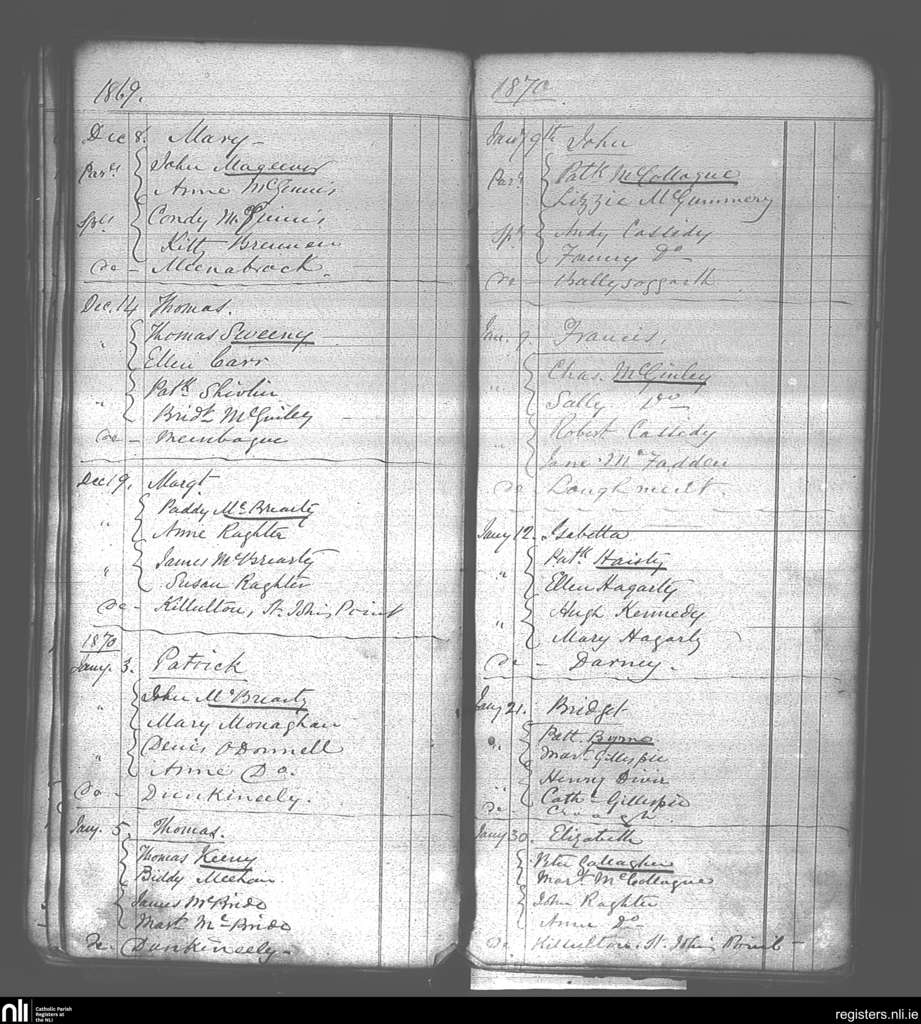 1869.
Dec 8. Mary
Parts John Mageever
Anne McGinnis
Sprs Condy McGinnis
Kitt Brennen
do - Meenabrock.
Dec. 14 Thomas.
" Thomas Sweeny
Ellen Carr
" Patk Shivlin
Bridt McGinley
do - Meenbogue
Dec 19, Margt
" Paddy McBrearty
Anne Raghter
" James McBrearty
Susan Raghter
do - Killulton, St. John's Point
1870
Jany. 3. Patrick
" John McBrearty
Mary Monaghan
" Denis O'Donnell
Anne Do.
do - Dunkineely.
Jany. 5, Thomas.
Thomas Keeny
Biddy Meehan
James McBride
Mart McBride
do. Dunkineely.
1870
Jany 9th John
Parts Patk McCollogue
Lizzie McGummery
Sprs Andy Cassidy
Fanny Do
do - Ballysoggarth
Jan. 9. Francis,
" Chas. McGinley
Sally Do
" Robert Cassidy
Jane McFadden
do - Loughmult.
Jany 12. Isabella
" Patk Haisty
Ellen Hagarty
" Hugh Kennedy
Mary Hagarty
do - Darney.
Jany 21. Bridget
" Patt Byrne
Mart Gillespie
" Henry Diver
Cathe Gillespie
do Croagh.
Jany 30. Elizabeth
Peter Gallagher
Mart McCollogue
John Raghter
Anne Do
do Killulton. St. John's Point -
nli
Catholic Parish
Registers at
the NLI
registers.nli.ie